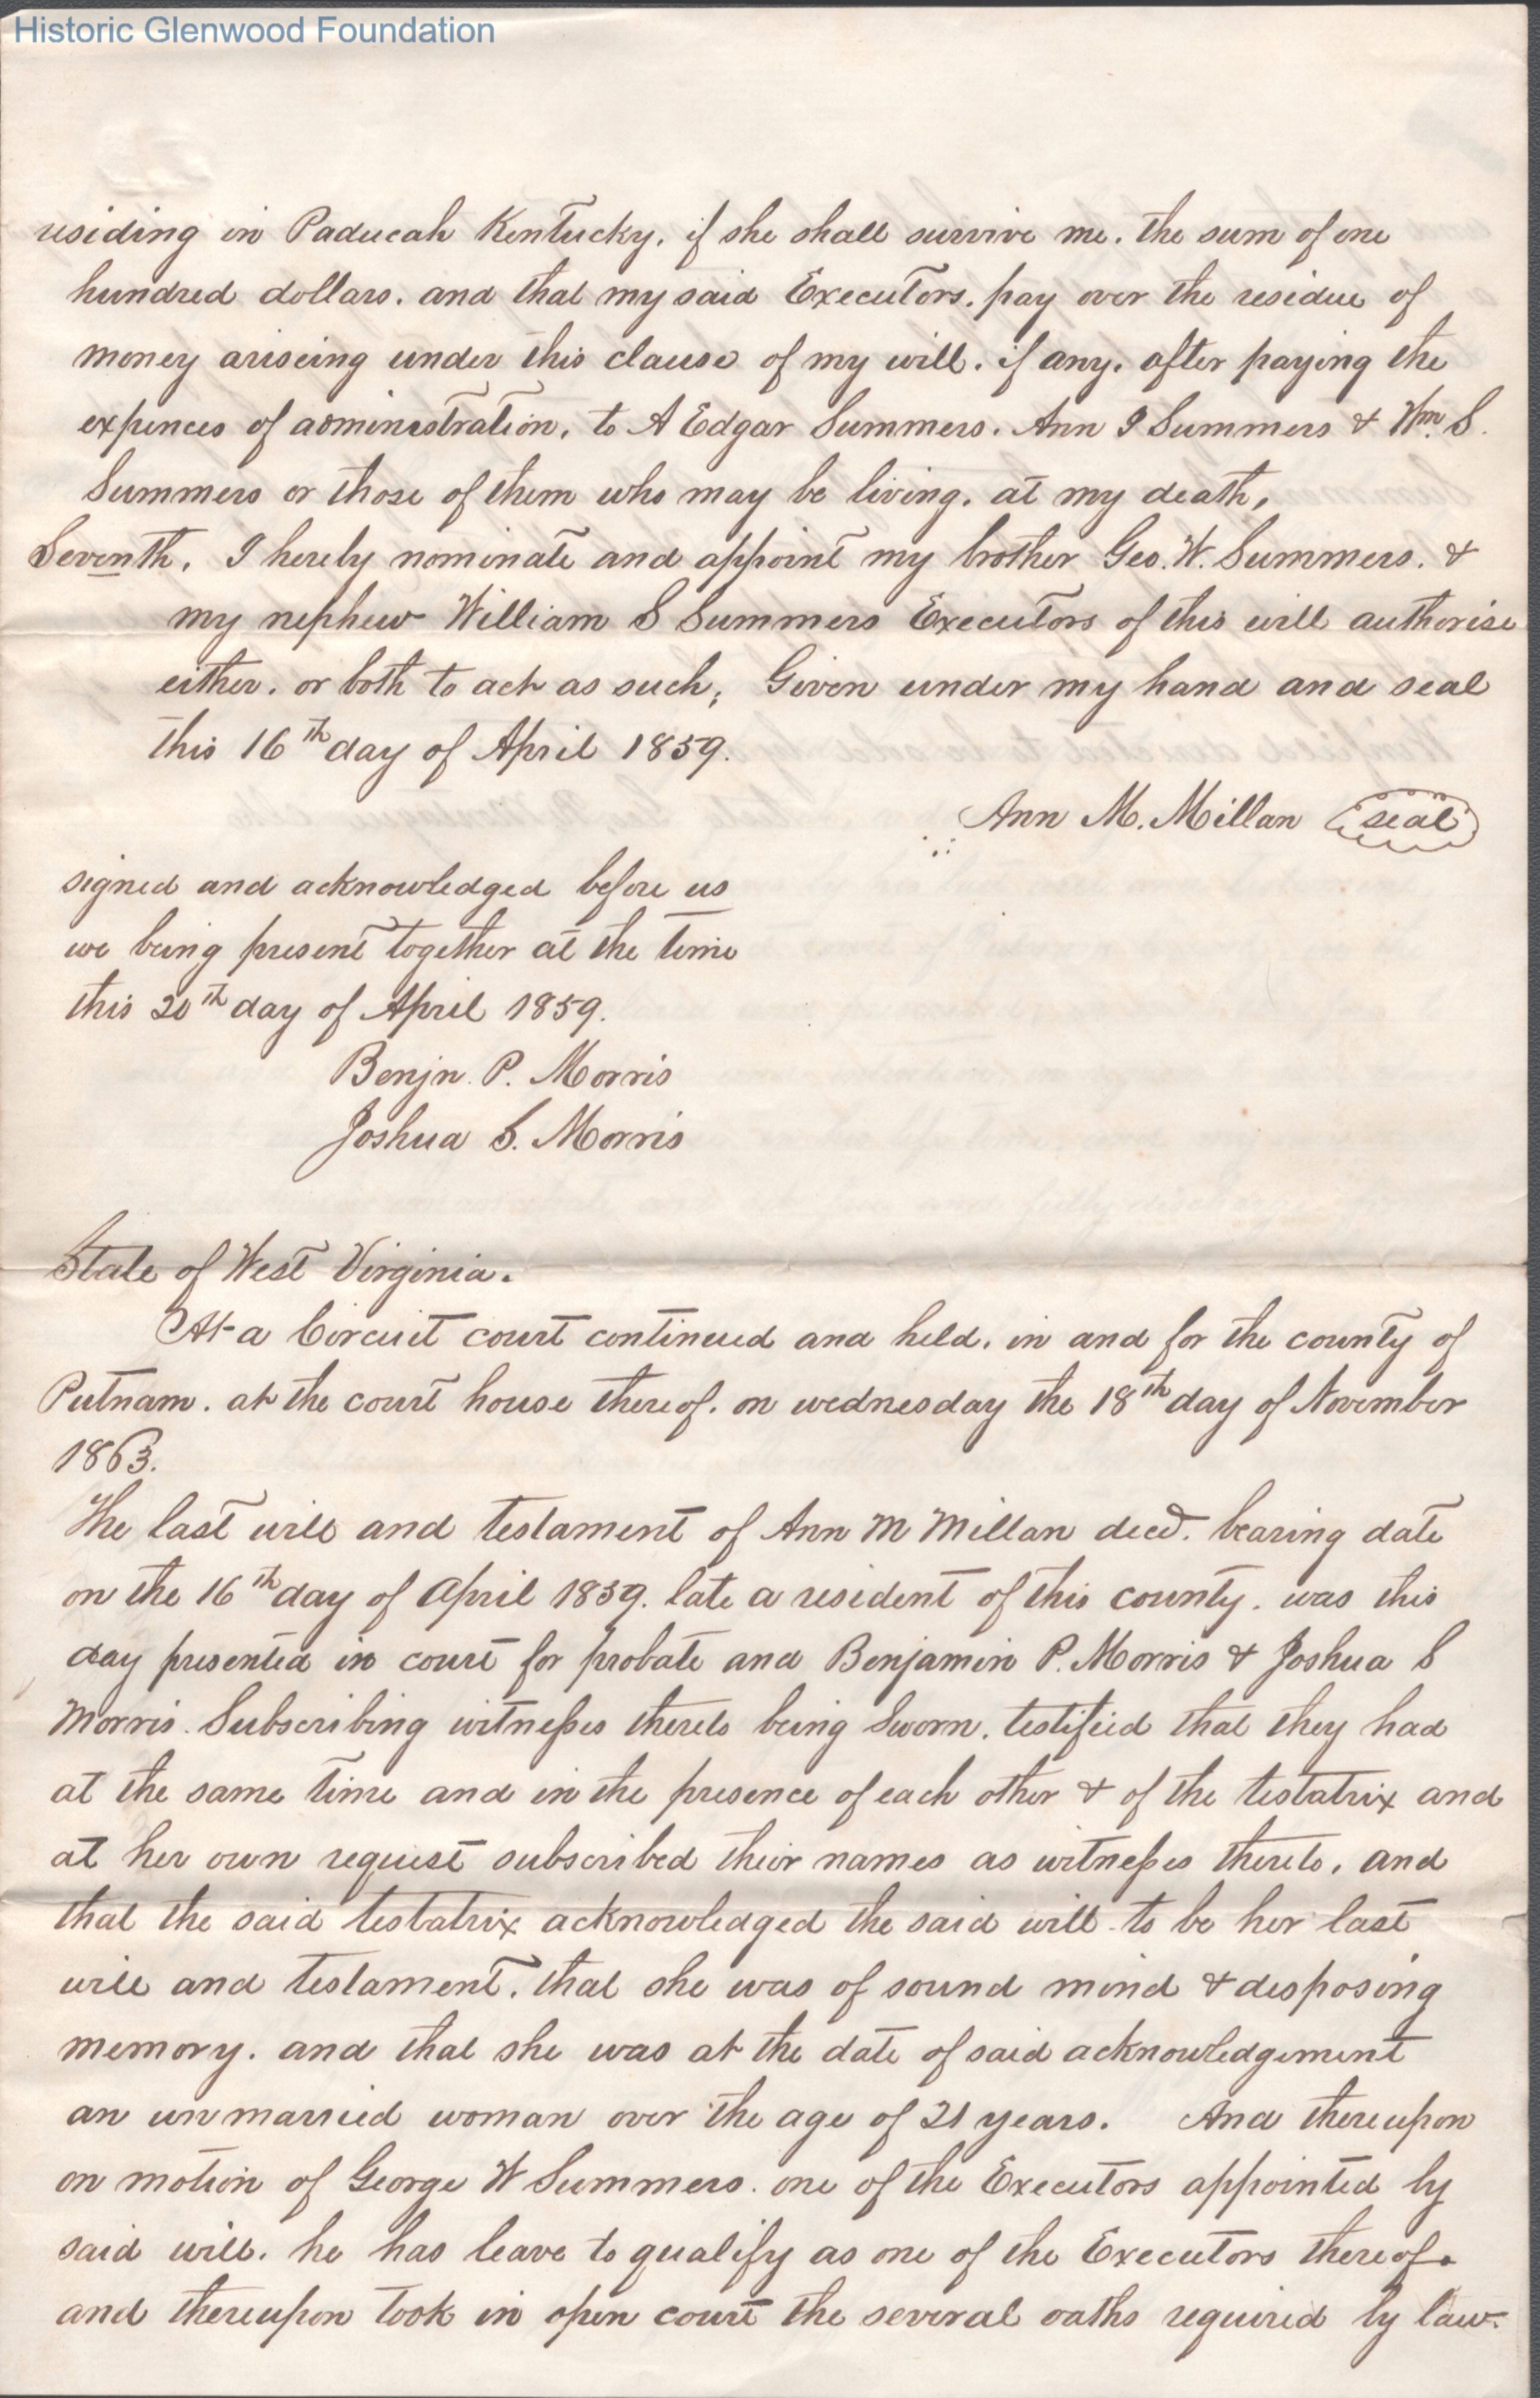 Historic Glenwood Foundation
residing in Paducah Kentucky, if she shall survive me. the sum of one
hundred dollars. and that my said Executors. pay over the residue of
money ariseing under this clause of my will. if any. after paying the
expences of administration, to A Edgar Summers. Ann I Summers & Wm. S.
Summers or those of them who may be living. at my death,
Seventh. I hereby nominate and appoint my brother Geo. W. Summers. &
my nephew William S Summers Executors of this will authorise
either. or both to act as such; Given under my hand and seal
this 16th day of April 1859.
Ann M. Millan seal
signed and acknowledged before us
we being present together at the time
this 20th day of April 1859.
Benjn. P. Morris
Joshua S. Morris
State of West Virginia.
At a Circuit court continued and held. in and for the county of
Putnam. at the court house thereof. on wednesday the 18th day of November
1863.
The last will and testament of Ann M Millan decd. bearing date
on the 16th day of April 1859. late a resident of this county. was this
day presented in court for probate and Benjamin P. Morris & Joshua S
Morris. Subscribing witnesses thereto being Sworn. testified that they had
at the same time and in the presence of each other & of the testatrix and
at her own request subscribed their names as witnesses thereto, and
that the said testatrix acknowledged the said will to be her last
will and testament. that she was of sound mind & disposing
memory. and that she was at the date of said acknowledgement
an unmarried woman over the age of 21 years. And thereupon
on motion of George W Summers. one of the Executors appointed by
said will. he has leave to qualify as one of the Executors thereof.
and thereupon took in open court the several oaths required by law.